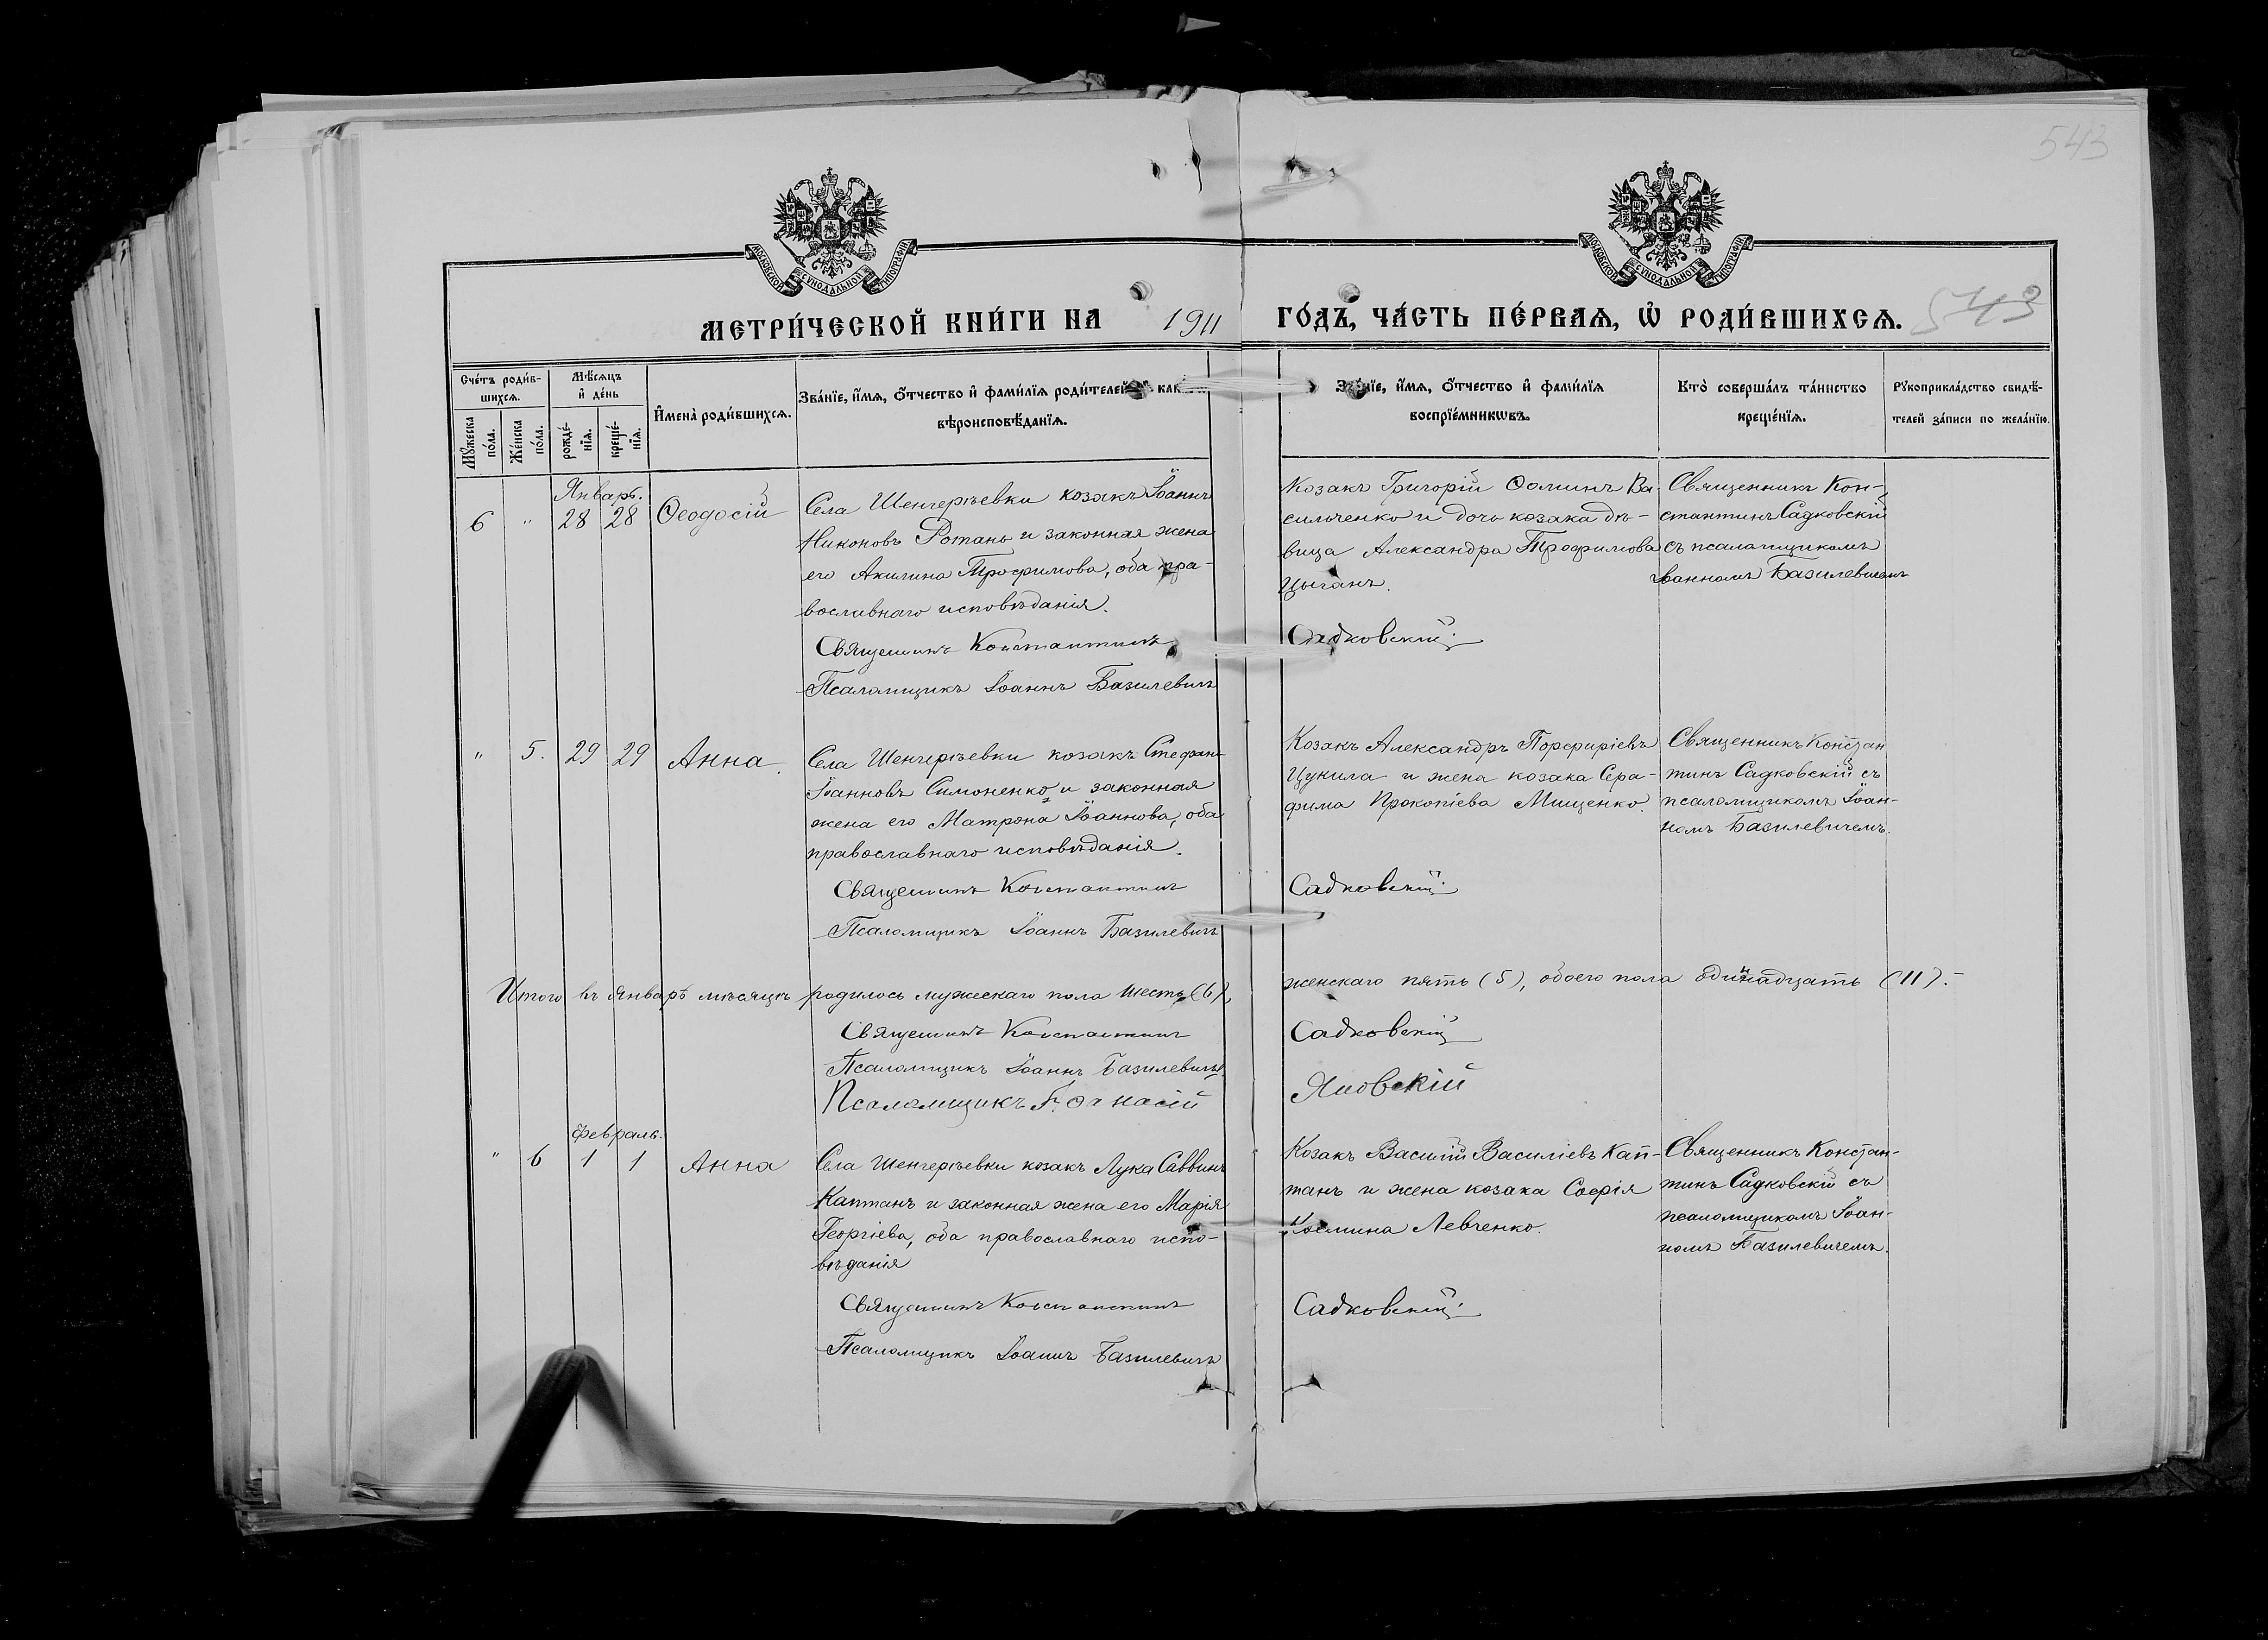 543
МОСКОВСКОЙ СѴНОДАЛЬНОЙ ТИПОГРАФІИ
МОСКОВСКОЙ СѴНОДАЛЬНОЙ ТИПОГРАФІИ
МЕТРИ́ЧЕСКОЙ КНИ́ГИ НА 1911 ГО́ДЪ, ЧА́СТЬ ПЕ́РВАѦ, Ѡ҆ РОДИ́ВШИХСѦ. 543
Сче́тъ роди́в-
шихсѧ.
Мꙋ́жеска
по́ла.
Же́нска
по́ла.
Мѣ́сѧцъ
и҆ де́нь
рожде́-
нїѧ.
креще́-
нїѧ.
И҆мена̀ роди́вшихсѧ.
Зва́нїе, и҆́мѧ, ѻ҆́тчество и҆ фами́лїѧ роди́телей и҆ как
вѣроисповѣ́данїѧ.
Зва́нїе, и҆́мѧ, ѻ҆́тчество и҆ фами́лїѧ
воспрїе́мникѡвъ.
Кто̀ соверша́лъ та́инство
креще́нїѧ.
Рꙋкоприкла́дство свидѣ́-
телей за́писи по жела́нїю.
Январь.
6 " 28 28 Ѳеодосій
Села Шенгерѣевки козакъ Іоаннъ
Никоновъ Ротань и законная жена
его Акилина Трофимова, оба пра-
вославнаго исповѣданія.
Священникъ Константинъ
Псаломщикъ Іоаннъ Базилевичъ
Козакъ Григорій Ѳоминъ Ва-
сильченко и дочь козака дѣ-
вица Александра Трофимова
Цыганъ.
Садковскій
Священникъ Кон-
стантинъ Садковскій
съ псаломщикомъ
Іоанномъ Базилевичемъ
" 5. 29 29 Анна.
Села Шенгерѣевки козакъ Стефанъ
Іоанновъ Симоненко и законная
жена его Матрона Іоаннова, оба
православнаго исповѣданія.
Священникъ Константинъ
Псаломщикъ Іоаннъ Базилевичъ
Козакъ Александръ Порфиріевъ
Цукила и жена козака Сера-
фима Прокопіева Мищенко.
Садковскій
Священникъ Констан
тинъ Садковскій съ
псаломщикомъ Іоан-
номъ Базилевичемъ.
Итого въ Январѣ мѣсяцѣ родилось мужескаго пола шесть (6), женскаго пять (5), обоего пола одинадцать (11).-
Священникъ Константинъ Садковскій
Псаломщикъ Іоаннъ Базилевичъ.
Псаломщикъ Яновскій
Февраль.
" 6 1 1 Анна
Села Шенгерѣевки козакъ Лука Саввинъ
Каптанъ и законная жена его Марія
Георгіева, оба православнаго испо-
вѣданія
Священникъ Константинъ
Псаломщикъ Іоаннъ Базилевичъ
Козакъ Василій Василіевъ Кап-
танъ и жена козака Софія
Козмина Левченко.
Садковскій
Священникъ Констан-
тинъ Садковскій съ
псаломщикомъ Іоан-
номъ Базилевичемъ.